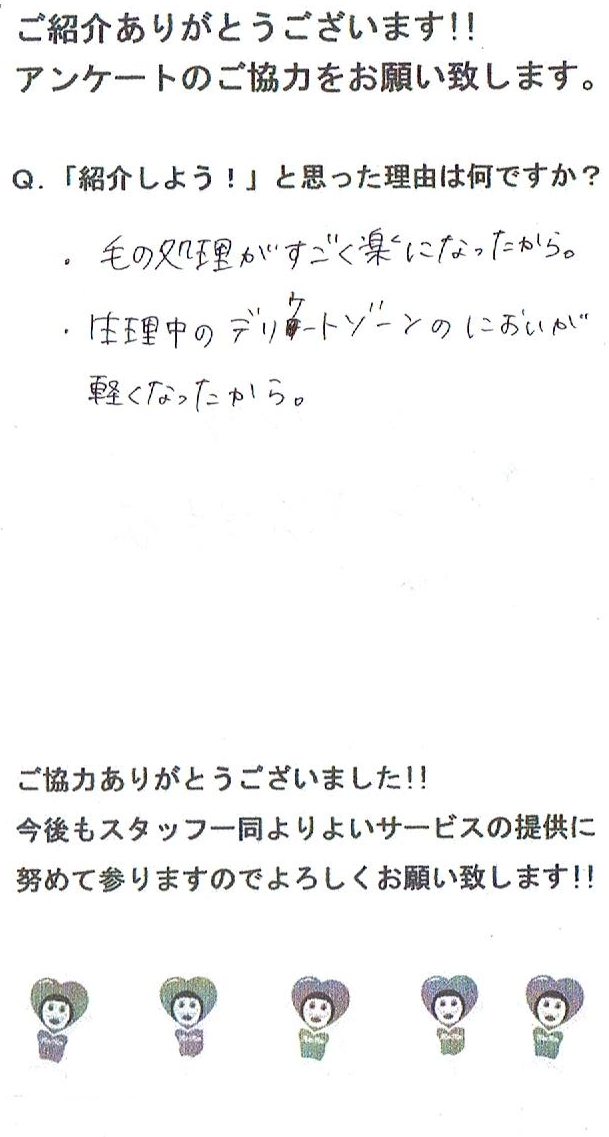 ご紹介ありがとうございます!!
アンケートのご協力をお願い致します。
Q.「紹介しよう！」と思った理由は何ですか？
・毛の処理がすごく楽になったから。
・生理中のデリケートゾーンのにおいが
軽くなったから。
ご協力ありがとうございました!!
今後もスタッフ一同よりよいサービスの提供に
努めて参りますのでよろしくお願い致します!!